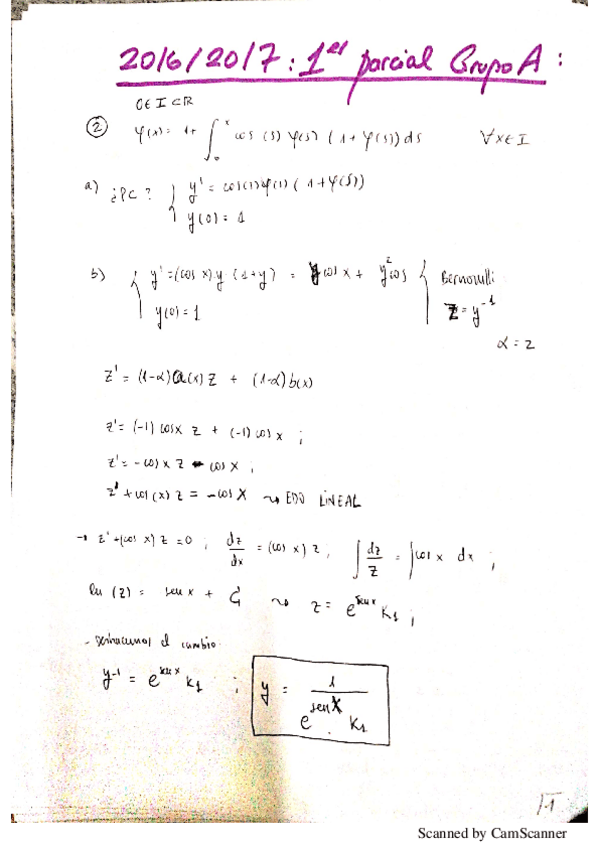 2016/2017: 1er parcial Grupo A:
0 ∈ I ⊂ R
② φ(x) = 1 + ∫₀ˣ cos (s) φ(s) (1 + φ(s)) ds ∀x∈I
a) ¿PC? { y' = cos(s) φ(s) (1 + φ(s))
y(0) = 1
b) { y' = (cos x)·y·(1+y) = y cos x + y² cos } Bernoulli
y(0) = 1 z = y⁻¹
α = 2
z' = (1-α)a(x) z + (1-α) b(x)
z' = (-1) cos x z + (-1) cos x ;
z' = - cos x z - cos x ;
z' + cos (x) z = - cos x ↝ EDO LINEAL
→ z' + (cos x) z = 0 ; dz/dx = (cos x) z ; ∫ dz/z = ∫ cos x dx ;
ln (z) = sen x + C₁ ↝ z = e^{sen x} K₁ ;
- Deshacemos el cambio.
y⁻¹ = e^{sen x} K₁ ; y = 1 / (e^{sen x} · K₁)
1
Scanned by CamScanner